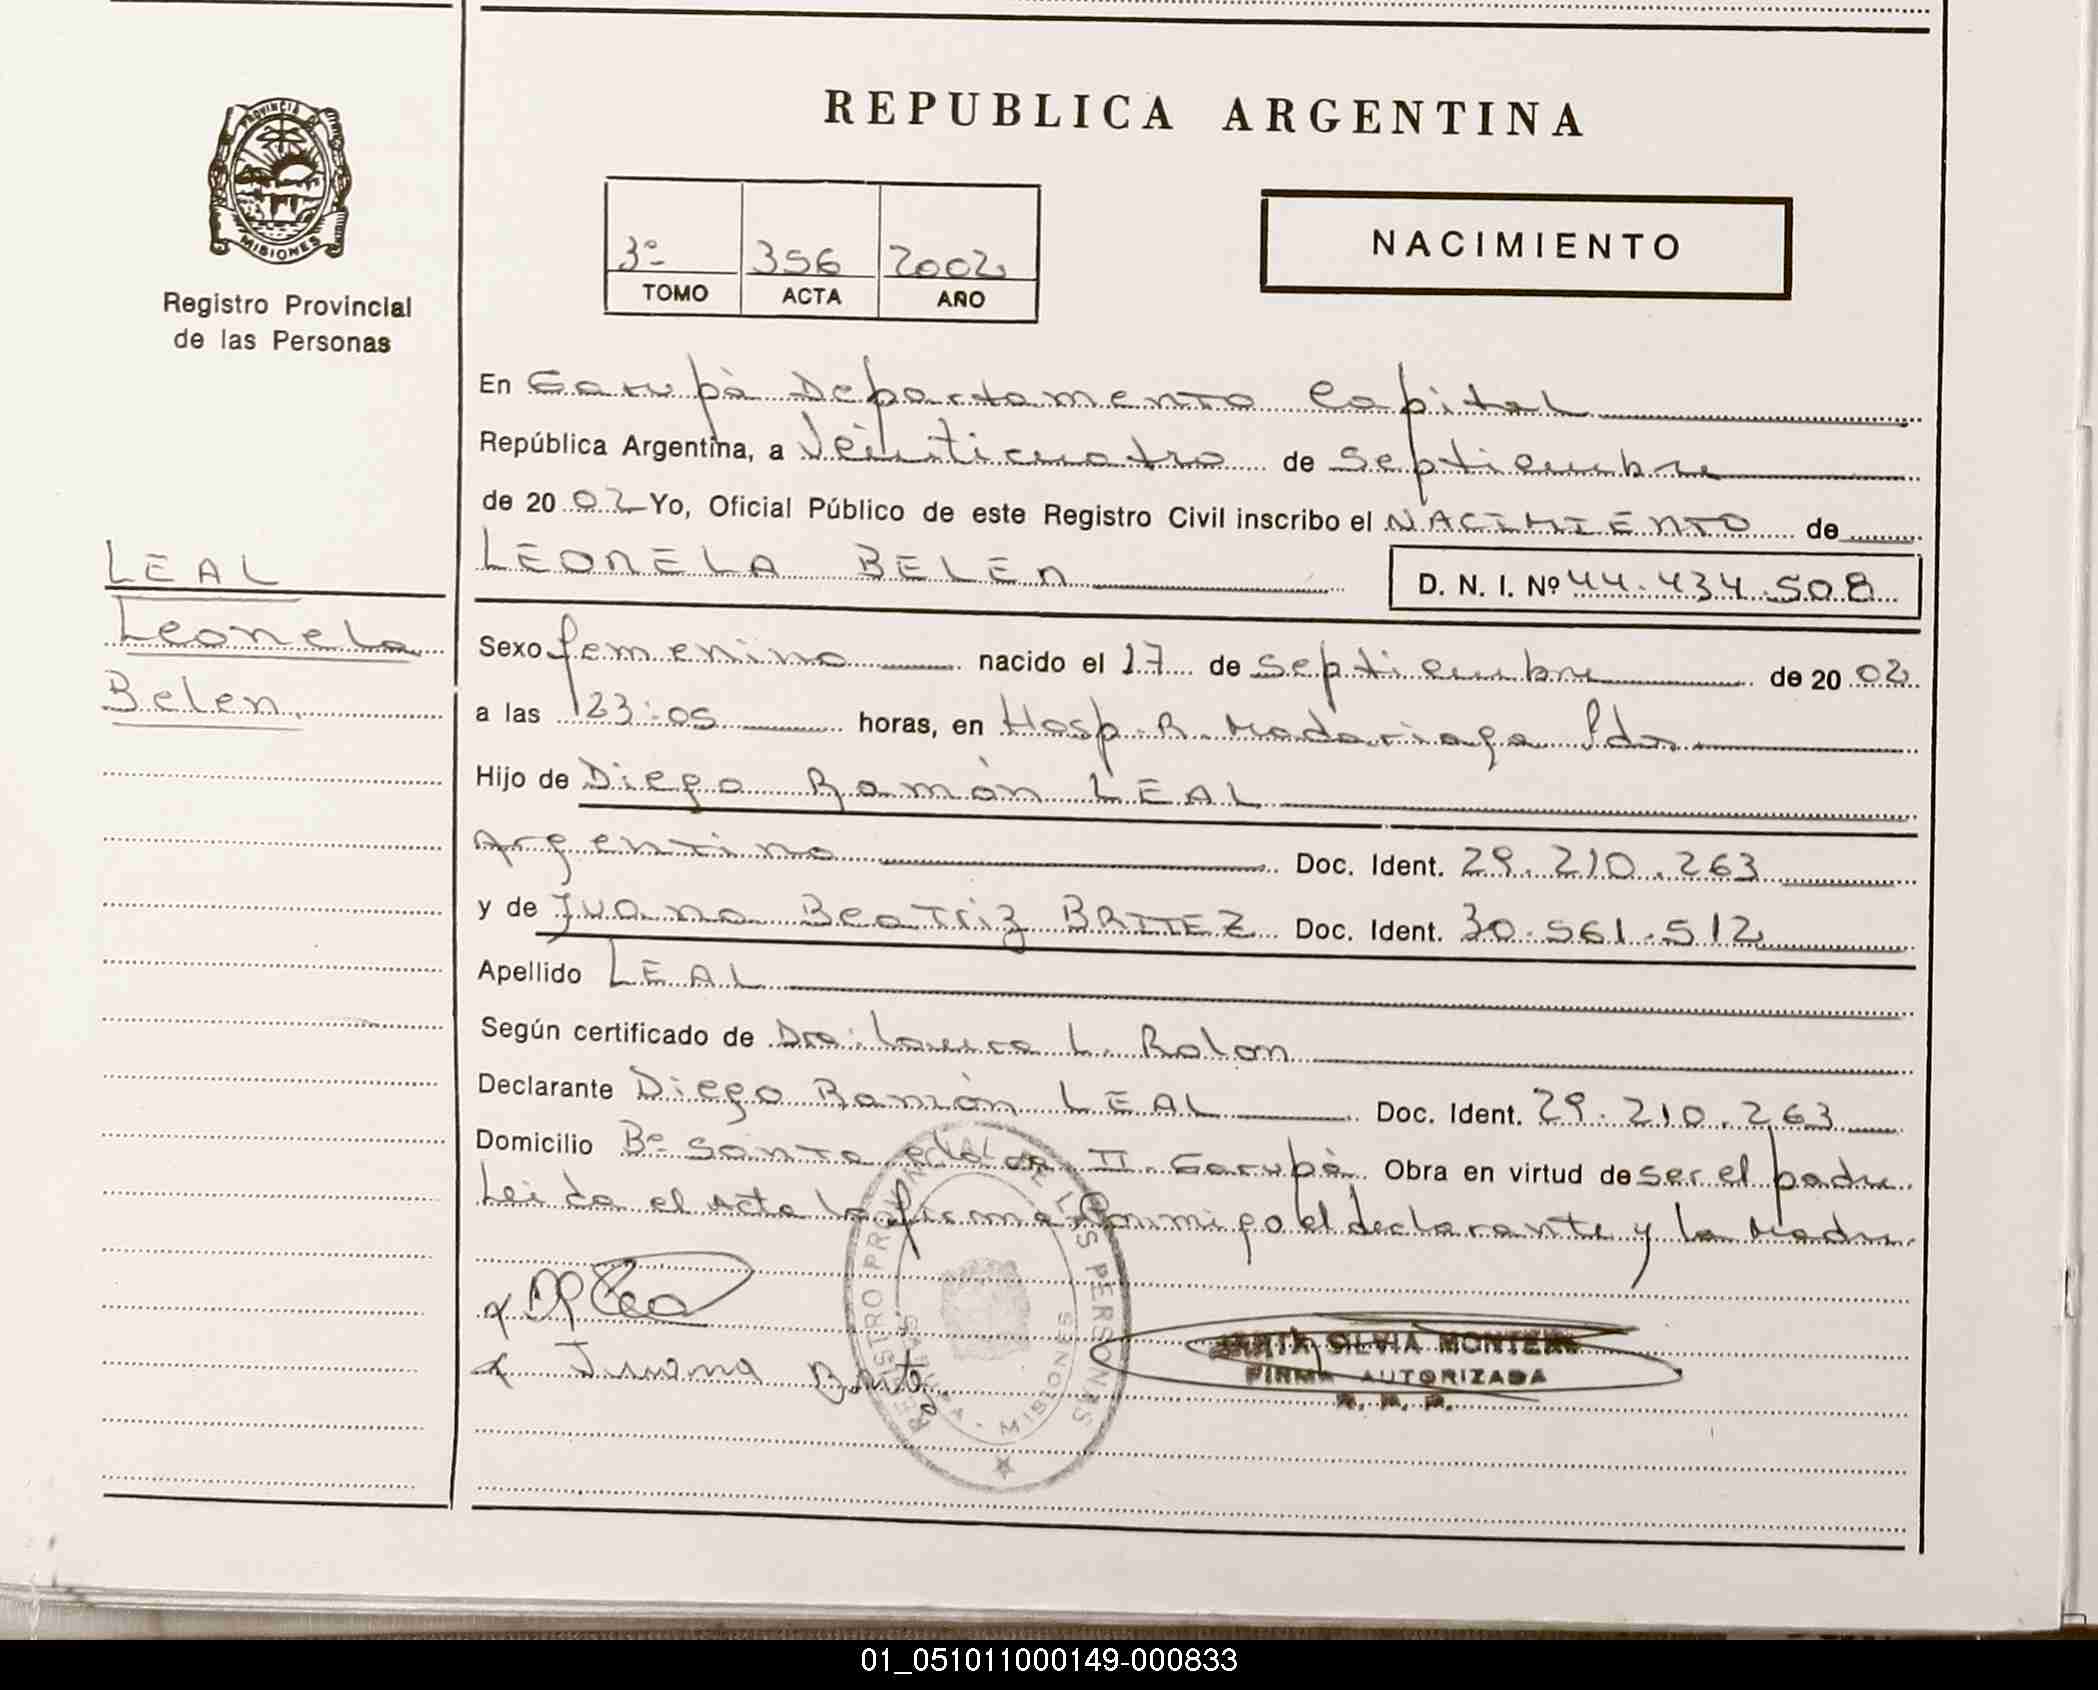 REPUBLICA ARGENTINA
PROVINCIA DE
MISIONES
Registro Provincial
de las Personas
3º 356 2002
TOMO ACTA AÑO
NACIMIENTO
En Garupà Departamento Capital
República Argentina, a Veinticuatro de Septiembre
de 2002 Yo, Oficial Público de este Registro Civil inscribo el NACIMIENTO de
LEONELA BELEN D. N. I. Nº 44.434.508
LEAL
Leonela
Belen.
Sexo femenino nacido el 17 de Septiembre de 2002
a las 23:05 horas, en Hosp. R. Madariaga Pdas
Hijo de Diego Ramòn LEAL
Argentino Doc. Ident. 29.210.263
y de Juana Beatriz BRITEZ Doc. Ident. 30.561.512
Apellido LEAL
Según certificado de Dra. Laura L. Rolon
Declarante Diego Ramòn LEAL Doc. Ident. 29.210.263
Domicilio Bº Santa II Garupà Obra en virtud de ser el padre
Leida el acta la firma Conmigo el declarante y la Madre
REGISTRO PROVINCIAL DE LAS PERSONAS
GARUPA - MISIONES
Juana Britez
SILVIA MONTERO
FIRMA AUTORIZADA
R. P. P.
01_051011000149-000833